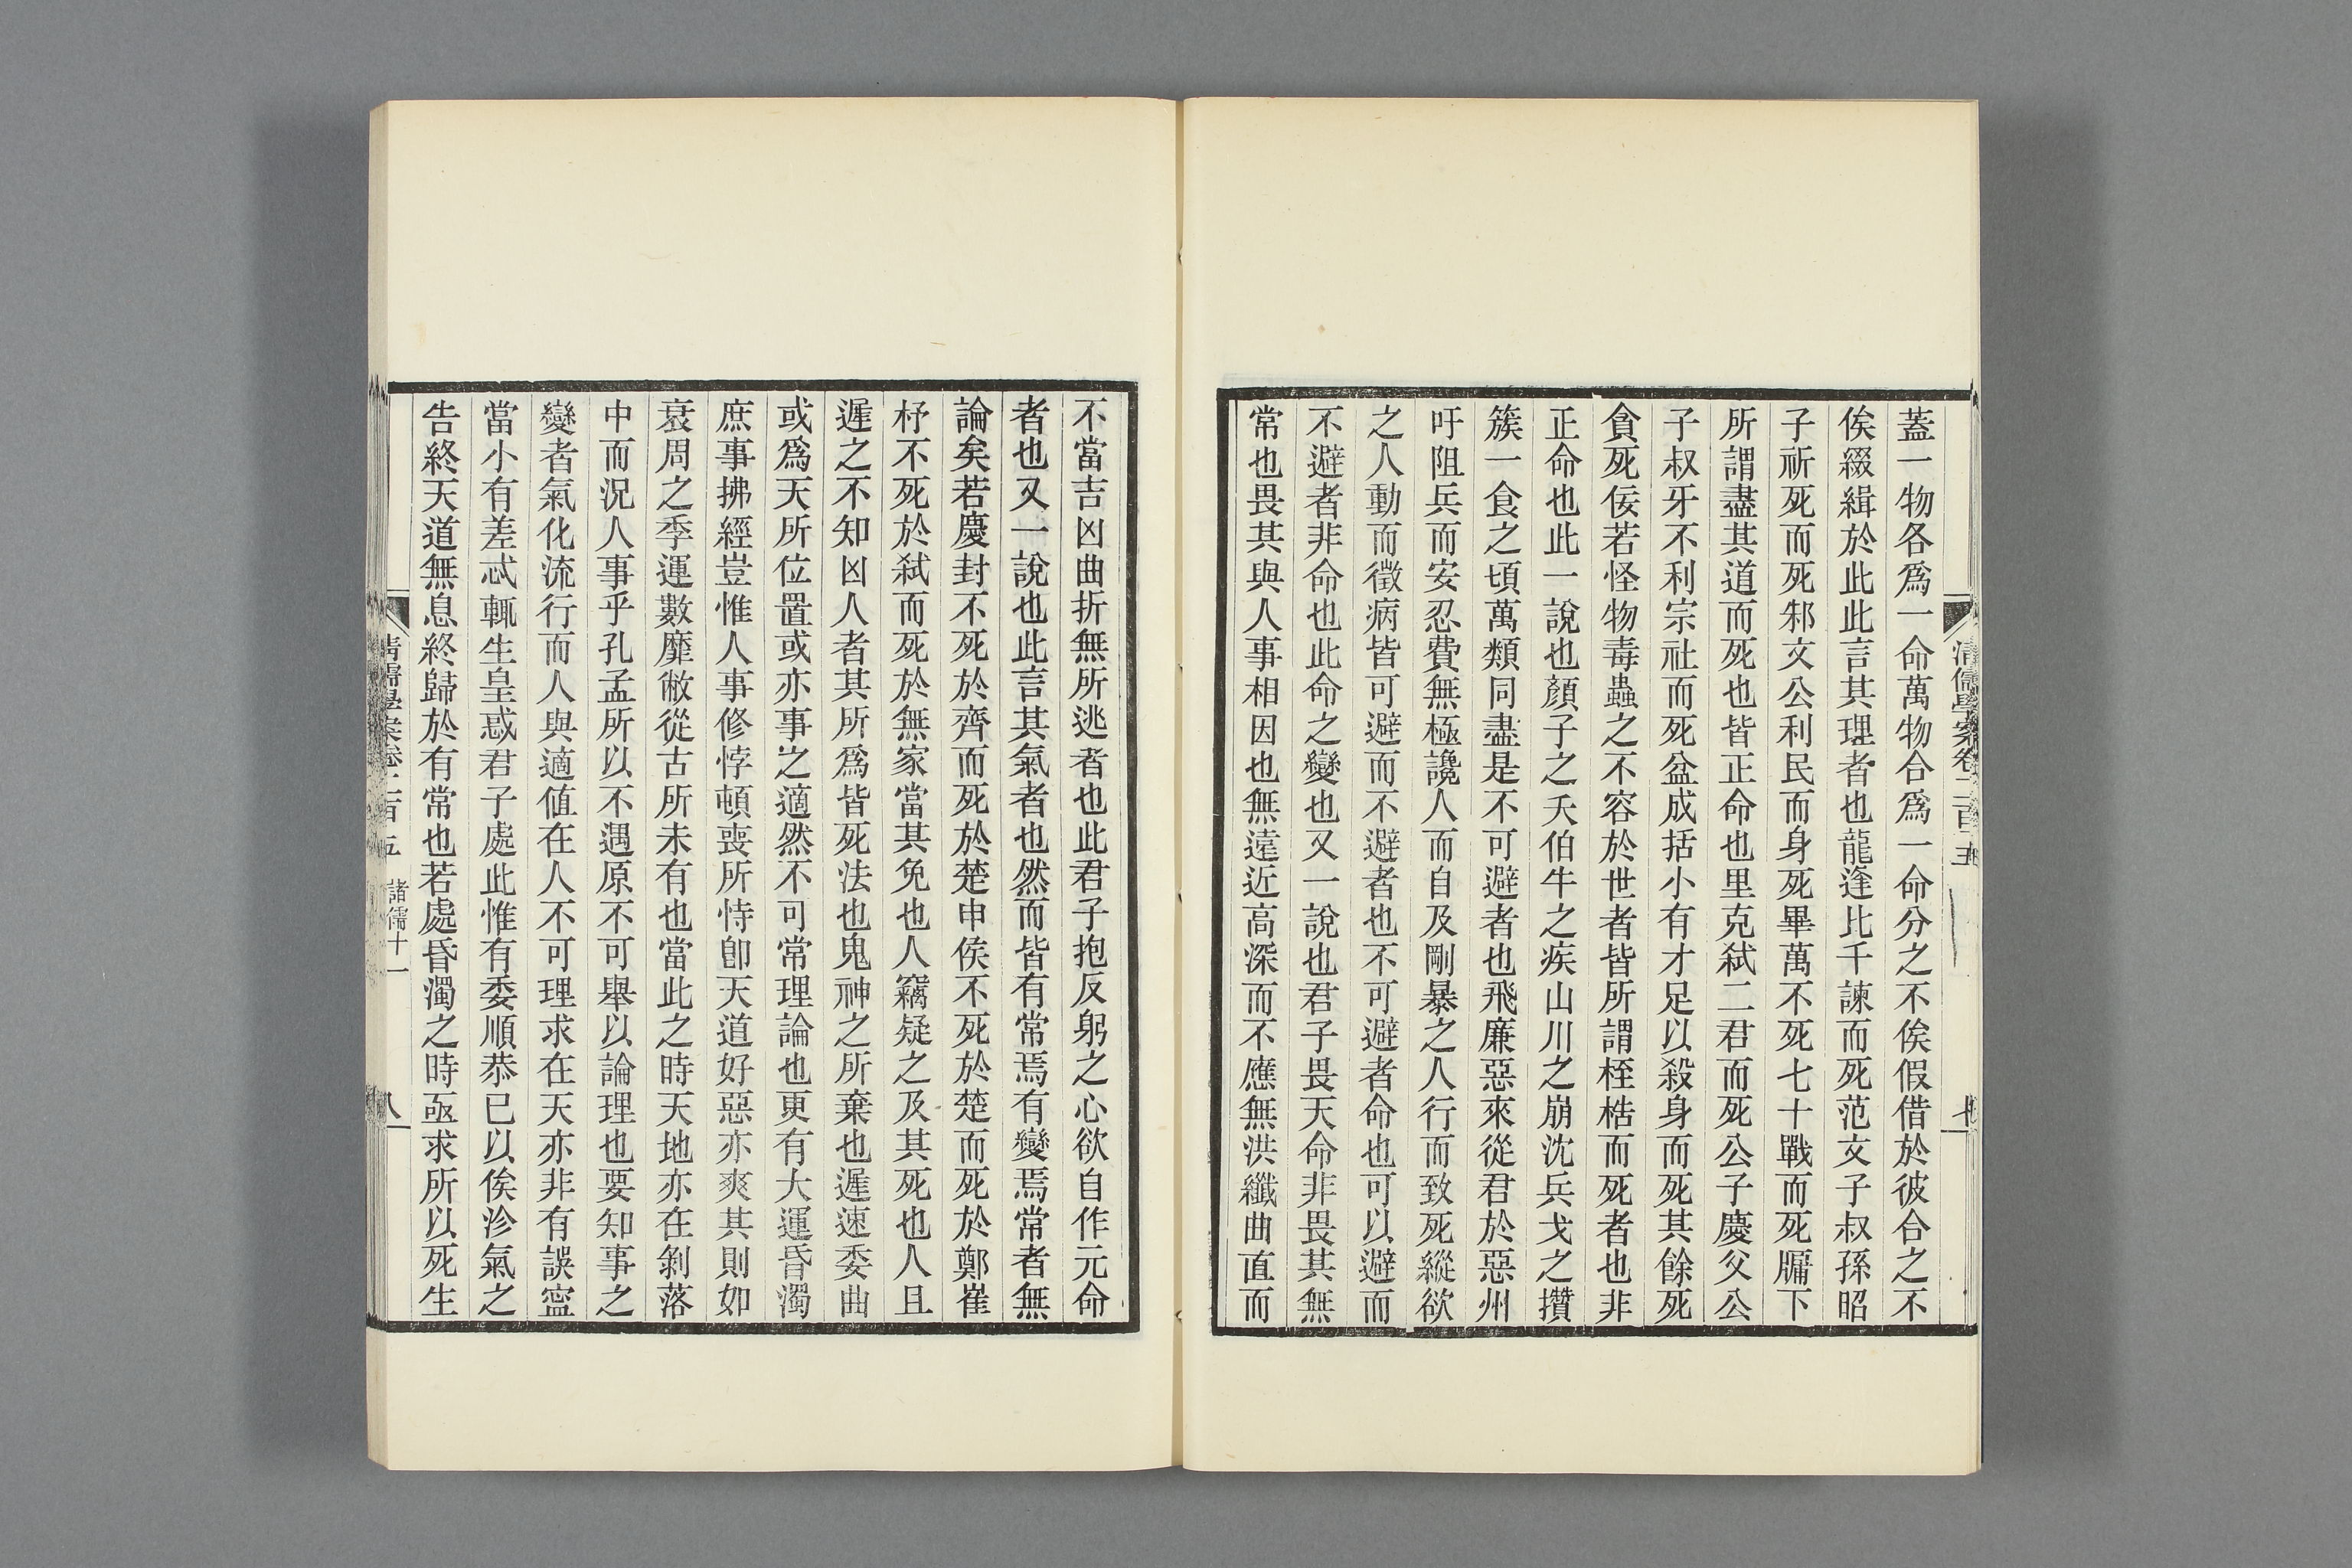 蓋一物各爲一命萬物合爲一命分之不俟假借於彼合之不
俟綴緝於此此言其理者也龍逢比干諫而死范文子叔孫昭
子祈死而死邾文公利民而身死畢萬不死七十戰而死牖下
所謂盡其道而死也皆正命也里克弑二君而死公子慶父公
子叔牙不利宗社而死盆成括小有才足以殺身而死其餘死
貪死佞若怪物毒蟲之不容於世者皆所謂桎梏而死者也非
正命也此一說也顏子之夭伯牛之疾山川之崩沈兵戈之攢
簇一食之頃萬類同盡是不可避者也飛廉惡來從君於惡州
吁阻兵而安忍費無極讒人而自及剛暴之人行而致死縱欲
之人動而徵病皆可避而不避者也不可避者命也可以避而
不避者非命也此命之變也又一說也君子畏天命非畏其無
常也畏其與人事相因也無遠近高深而不應無洪纖曲直而
清儒學案卷二百五
不當吉凶曲折無所逃者也此君子抱反躬之心欲自作元命
者也又一說也此言其氣者也然而皆有常焉有變焉常者無
論矣若慶封不死於齊而死於楚申侯不死於楚而死於鄭崔
杼不死於弑而死於無家當其免也人竊疑之及其死也人且
遲之不知凶人者其所爲皆死法也鬼神之所棄也遲速委曲
或爲天所位置或亦事之適然不可常理論也更有大運昏濁
庶事拂經豈惟人事修悖頓喪所恃卽天道好惡亦爽其則如
衰周之季運數靡敝從古所未有也當此之時天地亦在剝落
中而況人事乎孔孟所以不遇原不可舉以論理也要知事之
變者氣化流行而人與適値在人不可理求在天亦非有誤寍
當小有差忒輒生皇惑君子處此惟有委順恭已以俟沴氣之
告終天道無息終歸於有常也若處昏濁之時亟求所以死生
清儒學案卷二百五 諸儒十一 八